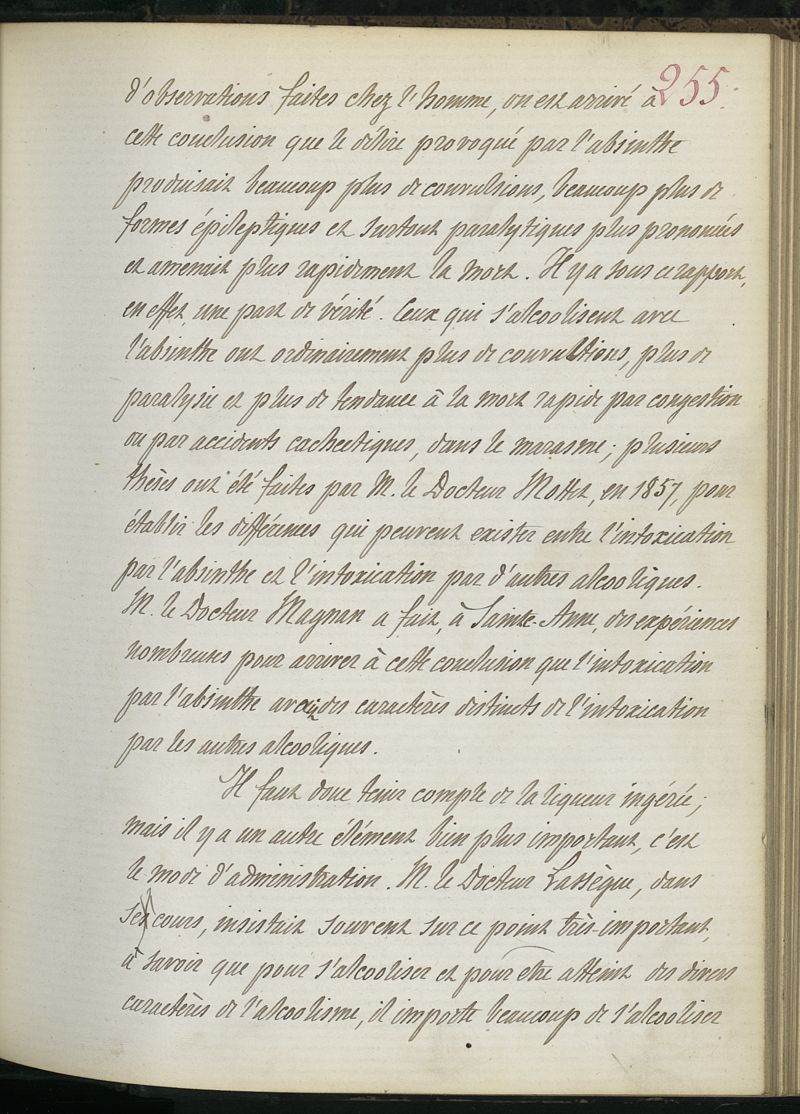 255.
d'observations faites chez l'homme, on est arrivé à
cette conclusion que le délire provoqué par l'absinthe
produisait beaucoup plus de convulsions, beaucoup plus de
formes épileptiques et surtout paralytiques plus prononcées
et amenait plus rapidement la mort. Il y a sous ce rapport,
en effet, une part de vérité. Ceux qui s'alcoolisent avec
l'absinthe ont ordinairement plus de convulsions, plus de
paralysie et plus de tendance à la mort rapide par congestion
ou par accidents cachectiques, dans le marasme; plusieurs
thèses ont été faites par M. le Docteur Mottet, en 1857, pour
établir les différences qui peuvent exister entre l'intoxication
par l'absinthe et l'intoxication par d'autres alcooliques.
M. le Docteur Magnan a fait, à Sainte-Anne, des expériences
nombreuses pour arriver à cette conclusion que l'intoxication
par l'absinthe avait des caractères distincts de l'intoxication
par les autres alcooliques.
Il faut donc tenir compte de la liqueur ingérée;
mais il y a un autre élément bien plus important, c'est
le mode d'administration. M. le Docteur Lassègue, dans
ses cours, insistait souvent sur ce point très-important,
à savoir que pour s'alcooliser et pour être atteint des divers
caractères de l'alcoolisme, il importe beaucoup de s'alcooliser